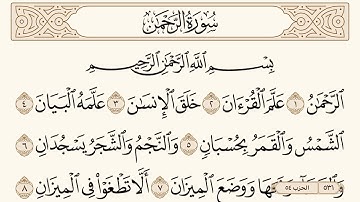 سُورَةُ الرَّحْمَٰن
بِسْمِ ٱللَّهِ ٱلرَّحْمَٰنِ ٱلرَّحِيمِ
ٱلرَّحْمَٰنُ ١ عَلَّمَ ٱلْقُرْءَانَ ٢ خَلَقَ ٱلْإِنسَٰنَ ٣ عَلَّمَهُ ٱلْبَيَانَ ٤
ٱلشَّمْسُ وَٱلْقَمَرُ بِحُسْبَانٍ ٥ وَٱلنَّجْمُ وَٱلشَّجَرُ يَسْجُدَانِ ٦
وَوَضَعَ ٱلْمِيزَانَ ٧ أَلَّا تَطْغَوْا۟ فِى ٱلْمِيزَانِ ٨
٥٣١ الحزب ٥٤